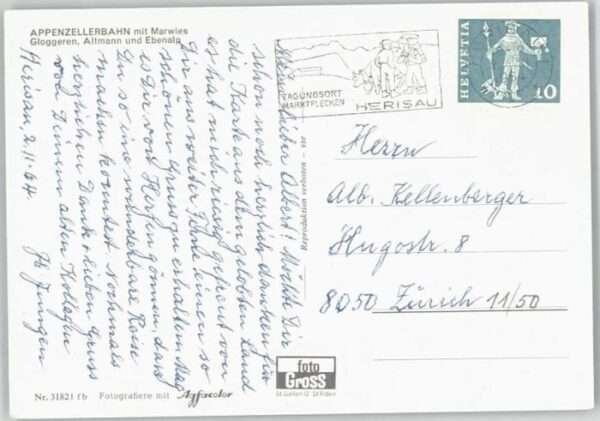 APPENZELLERBAHN mit Marwies
Gloggeren, Altmann und Ebenalp
Herisau, 2.11.64
Mein lieber Albert! Möchte Dir
schon noch herzlich danken für
die Karte aus dem gelobten Land
es hat mich riesig gefreut von
Dir aus weiter Ferne einen so
schönen Gruss zu erhalten. Mag
es Dir von Herzen gönnen, dass
Du so eine wunderbare Reise
machen konntest. Nochmals
herzlichen Dank + lieben Gruss
von Deinem alten Kollegen
Jb. Jungen
Reproduktion verboten
TAGUNGSORT
MARKTFLECKEN
HERISAU
HELVETIA
10
Herrn
Alb. Kellenberger
Hugostr. 8
8050 Zürich 11/50
foto
Gross
St. Gallen
Nr. 31821 fb Fotografiere mit Agfacolor